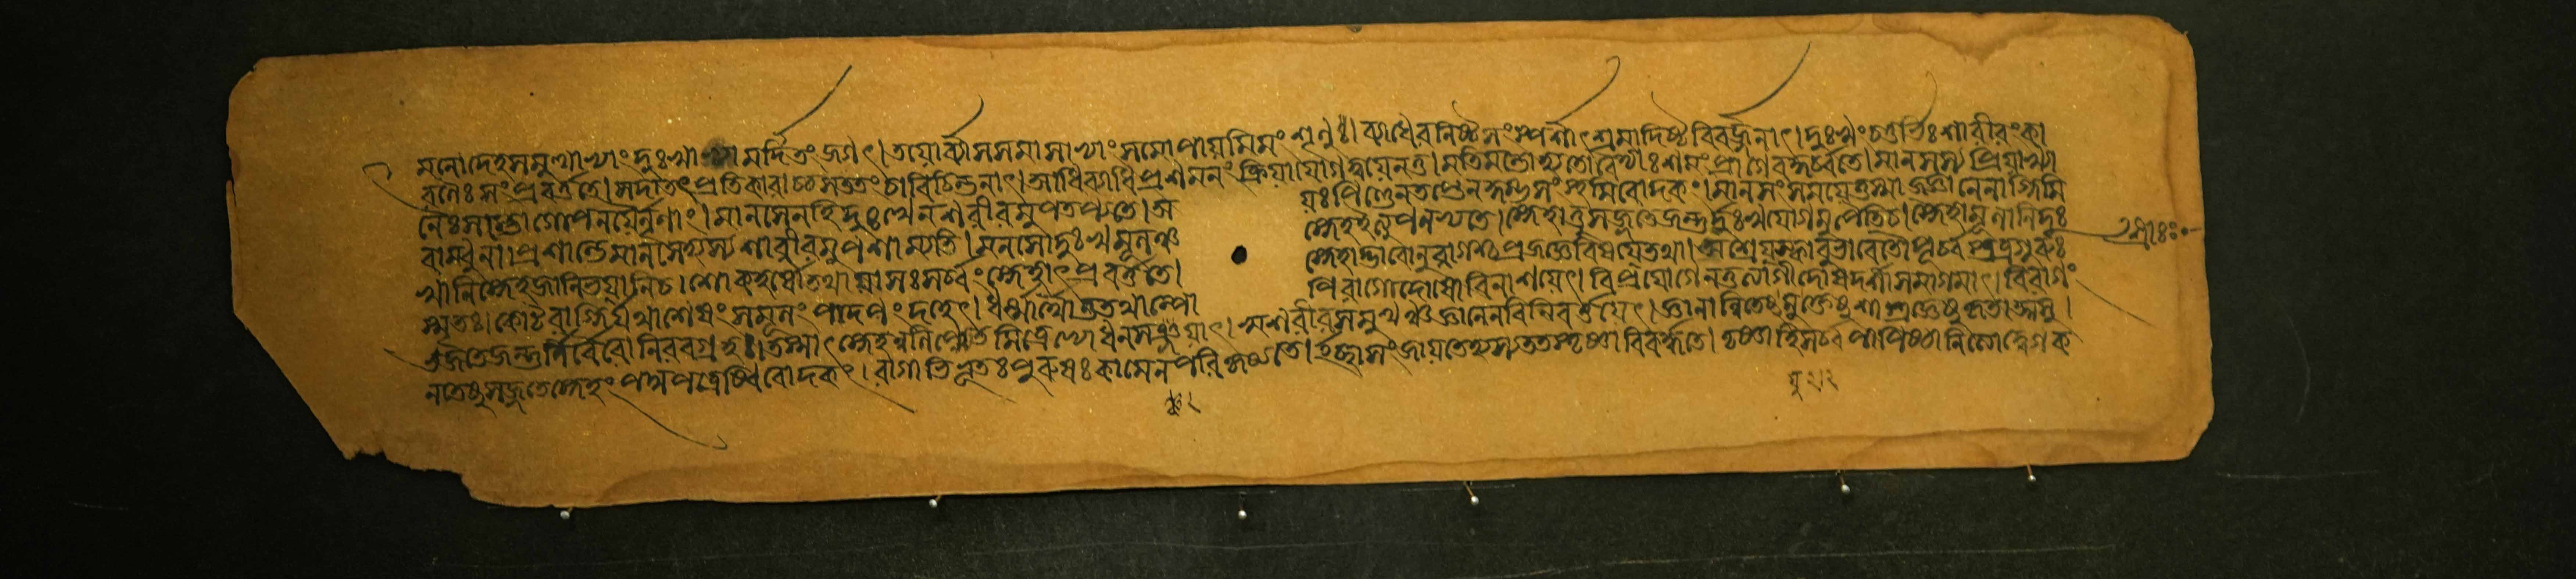 মনোদেহসমুত্থাভ্যাং দুঃখাভ্যামর্দিতং জগৎ। তয়োর্ব্যাসসমাসাভ্যাং সমোপায়মিমং শৃণুঃ। ব্যাধেরনিষ্টসংস্পর্শাৎ শ্রমাদিষ্টবিবর্জ্জনাৎ। দুঃখং চতুর্ভিঃ শারীরং কা
রণৈঃ সংপ্রবর্ত্ততে। সদাতৎ প্রতিকারাচ্চ সততং চাবিচিন্তনাৎ। আধিব্যাধিপ্রশমনং ক্রিয়াযোগদ্বয়েনতু। মতিমন্তোহ্যতো বৈদ্যাঃ শমং প্রাগেবকুর্ব্বতে। মানসস্য প্রিয়াখ্যা
নৈঃ সম্ভোগোপনয়ৈর্নৃণাং। মানসেনহি দুঃখেন শরীরমুপতপ্যতে। অয়ঃপিণ্ডেনতপ্তেন কুম্ভসংস্থমিবোদকং। মানসং সময়েত্তস্মাজ্জ্ঞানেনাগ্নিমি
বাম্বুনা। প্রশান্তে মানসেহ্যস্য শারীরমুপশাম্যতি। মনসোদুঃখমূলঞ্চ স্নেহইত্যুপলভ্যতে। স্নেহাত্তুসজ্জতেজন্তুর্দুঃখযোগমুপৈতিচ। স্নেহমূলানিদুঃ
খানি স্নেহজানিভয়ানিচ। শোকহর্ষৌতথায়াসঃ সর্ব্বং স্নেহাৎ প্রবর্ত্ততে। স্নেহাদ্ভাবোনুরাগশ্চ প্রজজ্ঞেবিষয়েতথা। অশ্রেয়স্কাবুভাবেতৌ পূর্ব্বস্তত্রগুরুঃ
স্মৃতঃ। কোটরাগ্নির্যথাশেষং সমূলং পাদপং দহেৎ। ধর্ম্মার্থৌতুতথাল্পোপি রাগোদোষো বিনাশয়েৎ। বিপ্রযোগেনতুত্যাগী দোষদর্শী সমাগমাৎ। বিরাগং
ভজতেজন্তুর্নির্বৈরো নিরবগ্রহঃ। তস্মাৎ স্নেহংনলিপ্সেত মিত্রেভ্যো ধনসঞ্চয়াৎ। স্বশরীরসমুত্থঞ্চ জ্ঞানেনবিনিবর্ত্তয়েৎ। জ্ঞানান্বিতেষু মুক্তেষু শাস্ত্রজ্ঞেষু কৃতাত্মসু।
নতেষুসজ্জতেস্নেহঃ পদ্মপত্রেষ্বিবোদকং। রাগাভিভূতঃ পুরুষঃ কামেনপরিকৃষ্যতে। ইচ্ছাসংজায়তেহ্যস্য ততস্তৃষ্ণা বিবর্দ্ধতে। তৃষ্ণাহিসর্ব্বপাপিষ্ঠা নিত্যোদ্বেগক